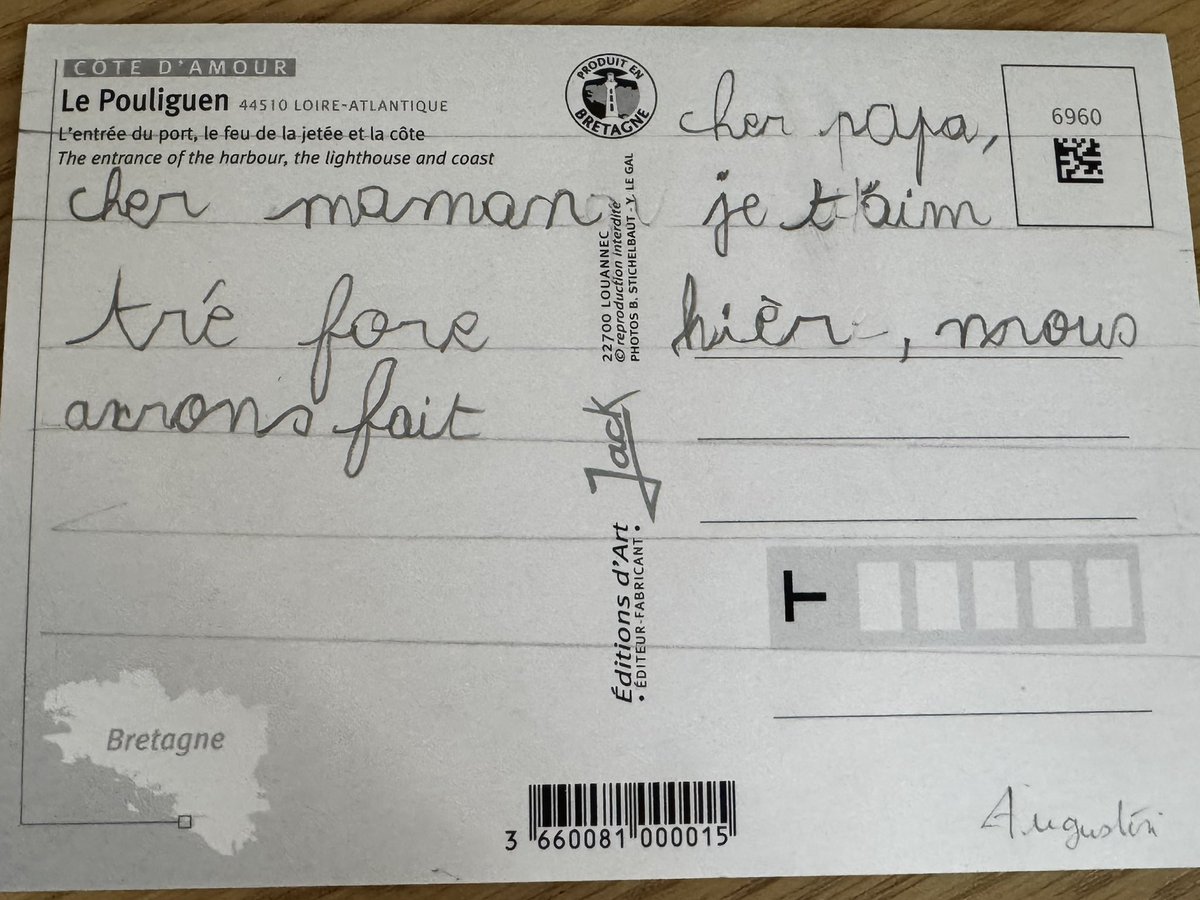 CÔTE D'AMOUR
Le Pouliguen 44510 LOIRE-ATLANTIQUE
L'entrée du port, le feu de la jetée et la côte
The entrance of the harbour, the lighthouse and coast
PRODUIT EN
BRETAGNE
6960
cher maman cher papa,
je t'aim
tré fore hièr, nous
avons fait
22700 LOUANNEC
© reproduction interdite
PHOTOS B. STICHELBAUT - Y. LE GAL
Jack
Éditions d'Art
• ÉDITEUR-FABRICANT •
T
Bretagne
3 660081 000015
Augustin